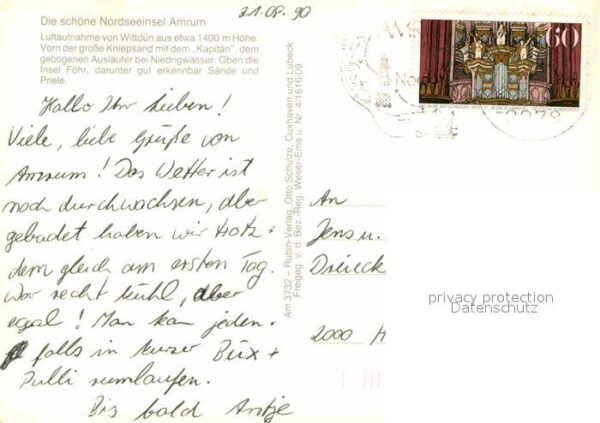 Die schöne Nordseeinsel Amrum
21.08.90
Luftaufnahme von Wittdün aus etwa 1400 m Höhe.
Vorn der große Kniepsand mit dem „Kapitän", dem
gebogenen Ausläufer bei Niedrigwasser. Oben die
Insel Föhr, darunter gut erkennbar Sände und
Priele.
Hallo Ihr Lieben!
Viele, liebe Grüße von
Amrum! Das Wetter ist
noch durchwachsen, aber
gebadet haben wir trotz-
dem gleich am ersten Tag.
War recht kühl, aber
egal! Man kann jeden-
falls in kurzer Büx +
Pulli rumlaufen.
Bis bald Antje
Am 3732 – Rubin-Verlag, Otto Schülze, Cuxhaven und Lübeck
Freigeg. v. d. Bez.-Reg. Weser-Ems u. Nr. 4/1616/09
60
An
Jens u.
Dreieck
2000 H
privacy protection
Datenschutz